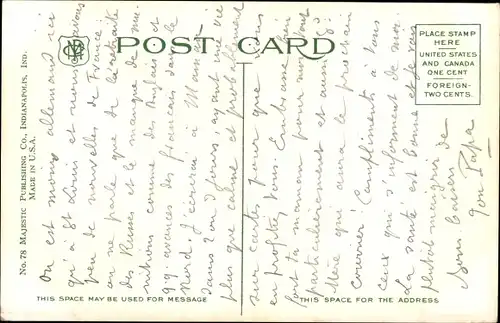 POST CARD
PLACE STAMP
HERE
UNITED STATES
AND CANADA
ONE CENT
FOREIGN-
TWO CENTS.
No. 78 MAJESTIC PUBLISHING CO., INDIANAPOLIS, IND.
MADE IN U.S.A.
On est moins allemand ici
qu'à St Louis et nous
peu de nouvelles de France
on ne parle que de la retraite
des Russes et le manque de mu-
nitions comme des Anglais et
qq. avances des français dans le
Nord. J'écourai à
dans 2 ou 3 jours ayant une vie
plus que calme et probablement
sur cartes pour que
en profitez tous. Embrasse bien
fort ta maman pour moi tout
particulièrement et aussi
Mère qui aura le prochain
courrier! Compliments à tous
ceux qui s'informent de moi.
La santé est bonne et je vais
plutôt maigrir de
Bons baisers
ton Papa
THIS SPACE MAY BE USED FOR MESSAGE
THIS SPACE FOR THE ADDRESS